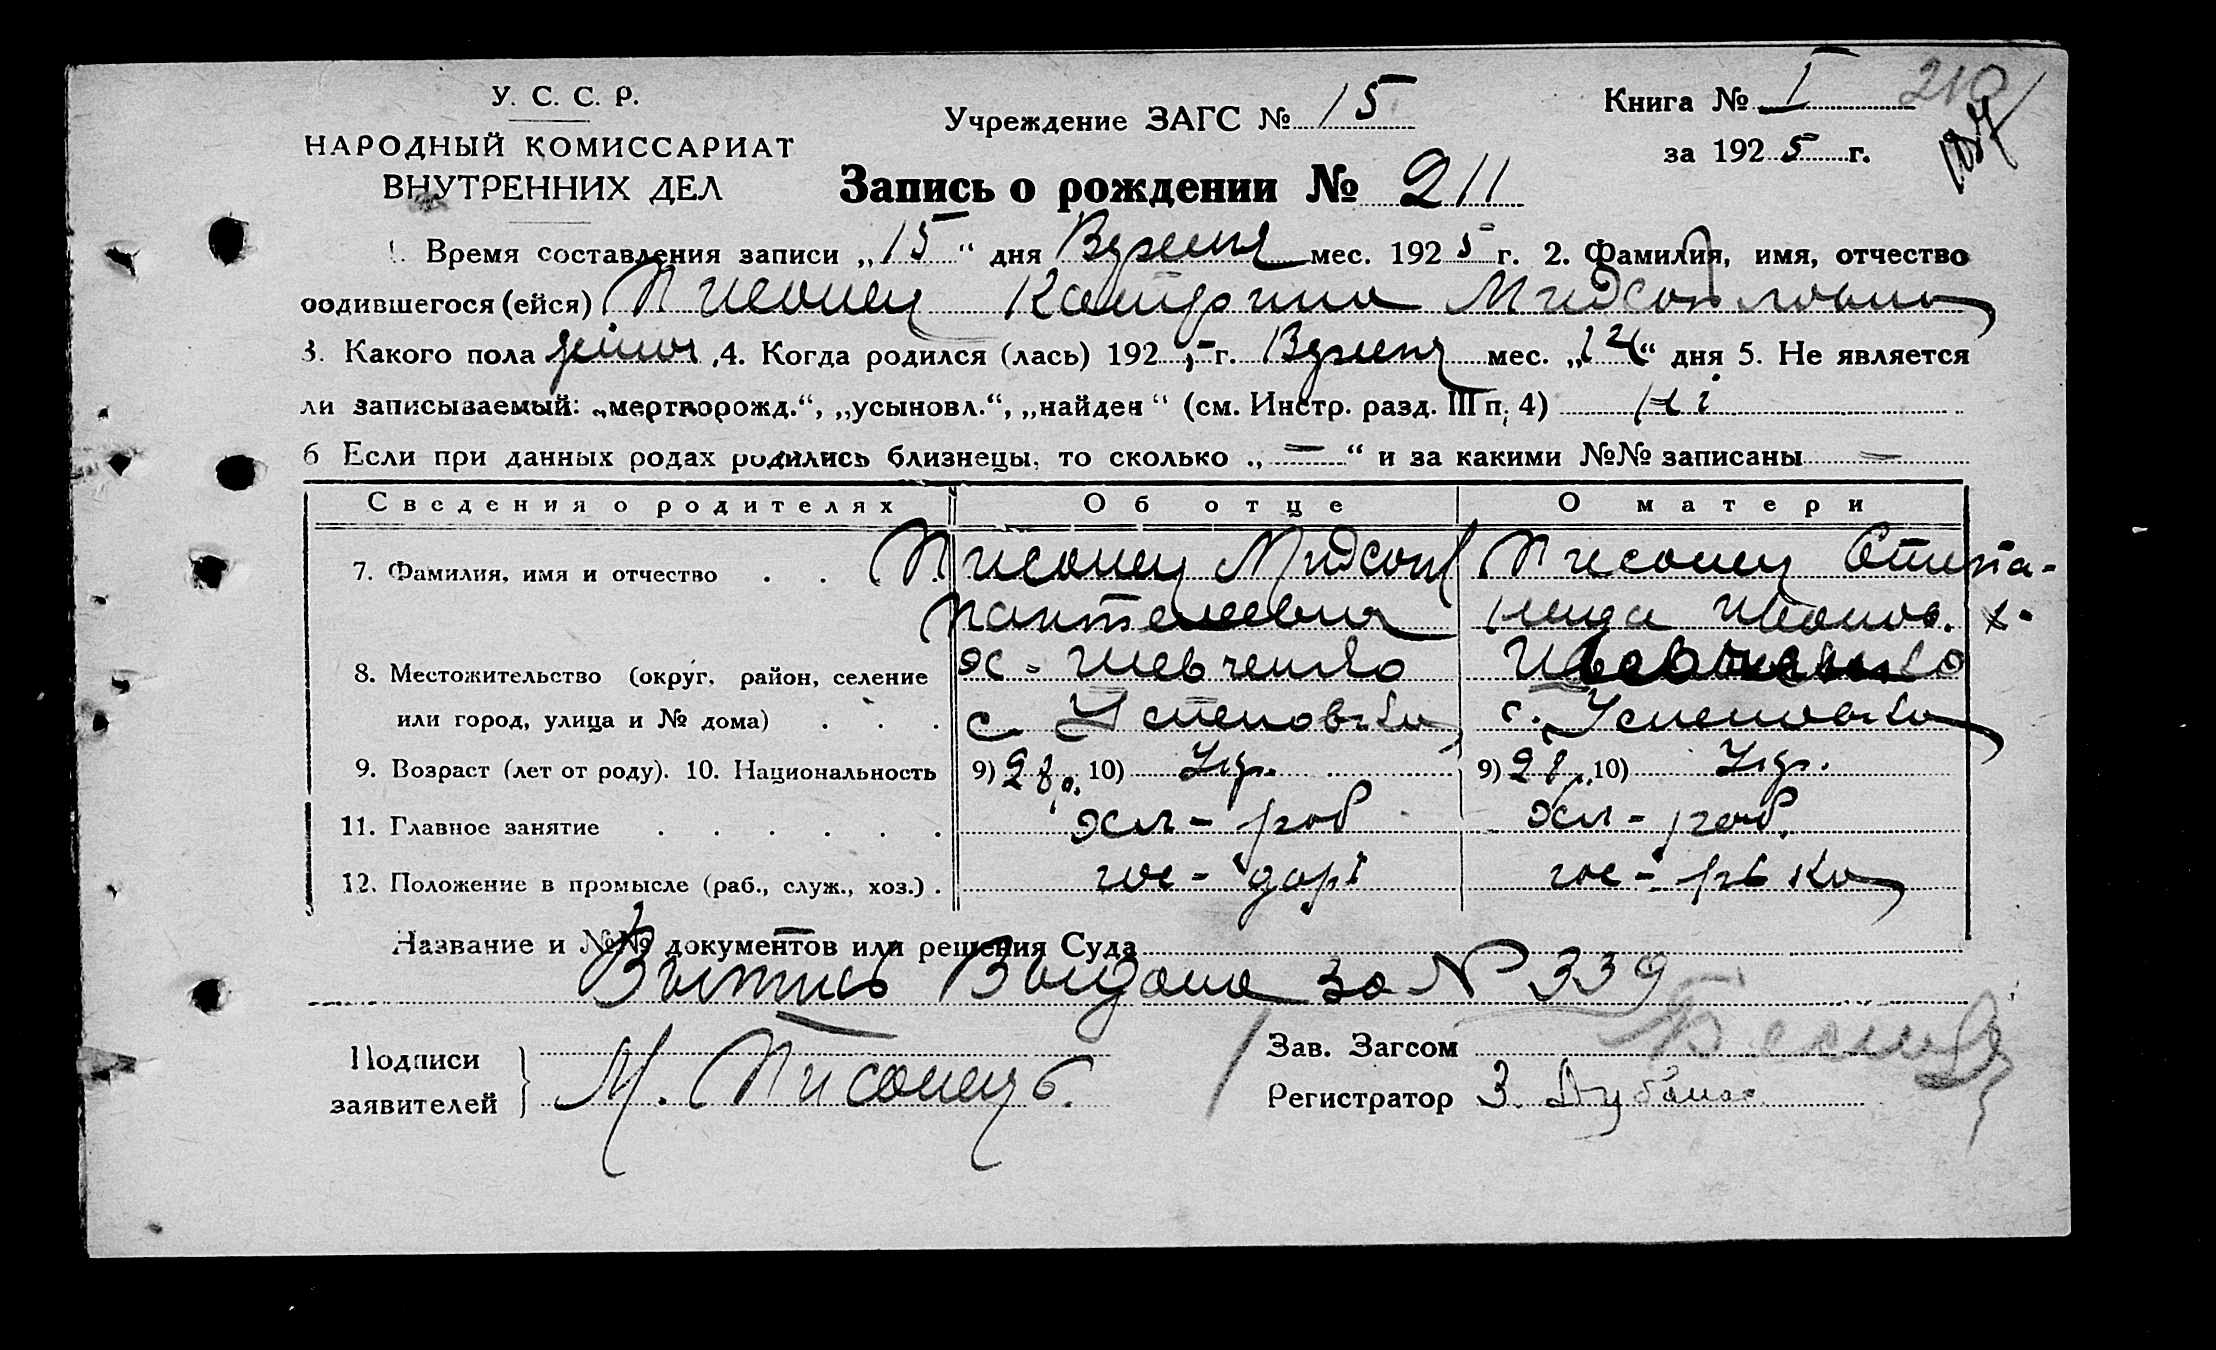 У. С. С. Р.
НАРОДНЫЙ КОМИССАРИАТ
ВНУТРЕННИХ ДЕЛ
Учреждение ЗАГС № 15
Книга № I 210
за 1925 г.
Запись о рождении № 211
1. Время составления записи „15“ дня Вересня мес. 1925 г. 2. Фамилия, имя, отчество
родившегося (ейся) Писанец Катрина
3. Какого пола жіноч ,4. Когда родился (лась) 1925 г. Вересня мес. „14“ дня 5. Не является
ли записываемый: „мертворожд.“, „усыновл.“, „найден“ (см. Инстр. разд. III п. 4) Ні
6 Если при данных родах родились близнецы, то сколько „ — “ и за какими №№ записаны —
Сведения о родителях Об отце О матери
7. Фамилия, имя и отчество . . Писанец Писанец
Пантелеевич Иванов. х.
8. Местожительство (округ, район, селение х. Шевченко Шевченко
или город, улица и № дома) . . . с. Успеновка с. Успеновка
9. Возраст (лет от роду). 10. Национальность 9) 28 р. 10) Укр. 9) 28 р. 10) Укр.
11. Главное занятие . . . . . . хл-роб хл-роб.
12. Положение в промысле (раб., служ., хоз.) . гос-дарь гос-рька
Название и №№ документов или решения Суда
Выпись Выдана за № 339
Подписи
заявителей } М. Писанец
Зав. Загсом
Регистратор З.